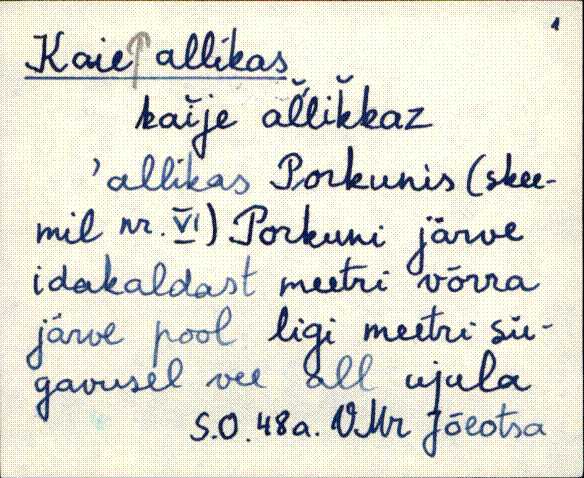 1
Kaie↑allikas
kaĭje aľľĭǩkaz
'allikas Porkunis (skee-
mil nr. VI) Porkuni järve
idakaldast meetri võrra
järve pool ligi meetri sü-
gavusel vee all ujula
S.O. 48a. VMr Jõeotsa